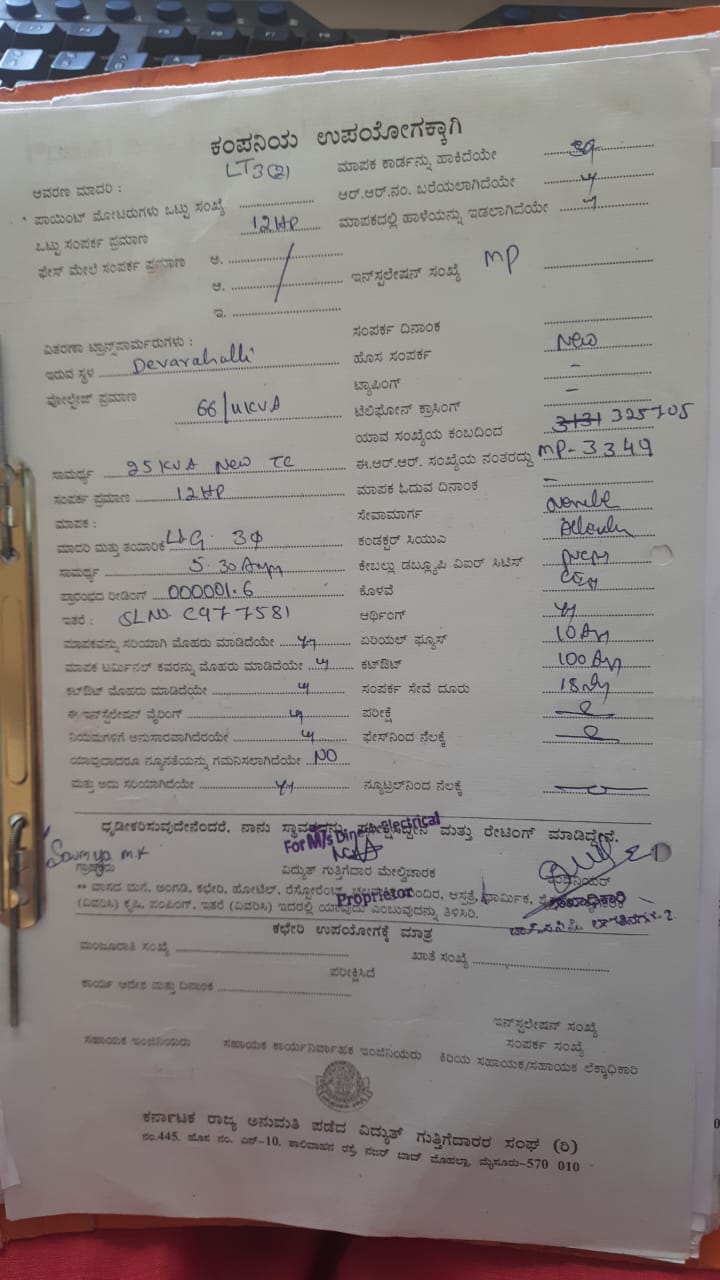 ಕಂಪನಿಯ ಉಪಯೋಗಕ್ಕಾಗಿ
ಆವರಣ ಮಾದರಿ : LT3(2) ಮಾಪಕ ಕಾರ್ಡನ್ನು ಹಾಕಿದೆಯೇ
* ಪಾಯಿಂಟ್ ಮೋಟರುಗಳು ಒಟ್ಟು ಸಂಖ್ಯೆ ಆರ್.ಆರ್.ನಂ. ಬರೆಯಲಾಗಿದೆಯೇ
ಒಟ್ಟು ಸಂಪರ್ಕ ಪ್ರಮಾಣ 12HP ಮಾಪಕದಲ್ಲಿ ಹಾಳೆಯನ್ನು ಇಡಲಾಗಿದೆಯೇ
ಫೇಸ್ ಮೇಲೆ ಸಂಪರ್ಕ ಪ್ರಮಾಣ ಅ.
ಆ. ಇನ್‌ಸ್ಟಲೇಷನ್ ಸಂಖ್ಯೆ MP
ಇ.
ವಿತರಣಾ ಟ್ರಾನ್ಸ್‌ಫಾರ್ಮರುಗಳು : ಸಂಪರ್ಕ ದಿನಾಂಕ
ಇರುವ ಸ್ಥಳ Devarahalli ಹೊಸ ಸಂಪರ್ಕ New
ವೋಲ್ಟೇಜ್ ಪ್ರಮಾಣ 66/11KVA ಟ್ಯಾಪಿಂಗ್ -
ಟೆಲಿಫೋನ್ ಕ್ರಾಸಿಂಗ್ -
ಯಾವ ಸಂಖ್ಯೆಯ ಕಂಬದಿಂದ 3131 325705
ಸಾಮರ್ಥ್ಯ 25KVA New TC ಈ.ಆರ್.ಆರ್. ಸಂಖ್ಯೆಯ ನಂತರದ್ದು MP-3349
ಸಂಪರ್ಕ ಪ್ರಮಾಣ 12HP ಮಾಪಕ ಓದುವ ದಿನಾಂಕ -
ಮಾಪಕ : ಸೇವಾಮಾರ್ಗ
ಮಾದರಿ ಮತ್ತು ತಯಾರಿಕೆ L&G 3Φ ಕಂಡಕ್ಟರ್ ಸಿಯುಎ
ಸಾಮರ್ಥ್ಯ 5-30 Amp ಕೇಬಲ್ಲು ಡಬ್ಲ್ಯೂಪಿ ವಿಐರ್ ಸಿಟಿಸ್
ಪ್ರಾರಂಭದ ರೀಡಿಂಗ್ 000001.6 ಕೊಳವೆ
ಇತರೆ : SLNO. C977581 ಆರ್ಥಿಂಗ್
ಮಾಪಕವನ್ನು ಸರಿಯಾಗಿ ಮೊಹರು ಮಾಡಿದೆಯೇ ಏರಿಯಲ್ ಫ್ಯೂಸ್ 10 Am
ಮಾಪಕ ಟರ್ಮಿನಲ್ ಕವರನ್ನು ಮೊಹರು ಮಾಡಿದೆಯೇ ಕಟ್‌ಔಟ್ 100 Am
ಕಟ್‌ಔಟ್ ಮೊಹರು ಮಾಡಿದೆಯೇ ಸಂಪರ್ಕ ಸೇವೆ ದೂರು
ಈ ಇನ್‌ಸ್ಟಲೇಷನ್ ವೈರಿಂಗ್ ಪರೀಕ್ಷೆ
ನಿಯಮಗಳಿಗೆ ಅನುಸಾರವಾಗಿದೆರಯೇ ಫೇಸ್‌ನಿಂದ ನೆಲಕ್ಕೆ
ಯಾವುದಾದರೂ ನ್ಯೂನತೆಯನ್ನು ಗಮನಿಸಲಾಗಿದೆಯೇ NO
ಮತ್ತು ಅದು ಸರಿಯಾಗಿದೆಯೇ ನ್ಯೂಟ್ರಲ್‌ನಿಂದ ನೆಲಕ್ಕೆ
ಧೃಡೀಕರಿಸುವುದೇನೆಂದರೆ, ನಾನು ಸ್ಥಾವರವನ್ನು ಪರೀಕ್ಷಿಸಿದ್ದೇನೆ ಮತ್ತು ರೇಟಿಂಗ್ ಮಾಡಿದ್ದೇನೆ.
For M/s Dinesh Electrical
Sowmya M.K
ಗ್ರಾಹಕರು ವಿದ್ಯುತ್ ಗುತ್ತಿಗೆದಾರ ಮೇಲ್ವಿಚಾರಕ ಇಂಜಿನಿಯರ್
** ವಾಸದ ಮನೆ, ಅಂಗಡಿ, ಕಛೇರಿ, ಹೋಟೆಲ್, ರೆಸ್ಟೋರೆಂಟ್, ಮಂದಿರ, ಆಸ್ಪತ್ರೆ, ಧಾರ್ಮಿಕ,
Proprietor
(ವಿವರಿಸಿ) ಕೃಷಿ, ಪಂಪಿಂಗ್, ಇತರೆ (ವಿವರಿಸಿ) ಇದರಲ್ಲಿ ಯಾವುದು ಎಂಬುವುದನ್ನು ತಿಳಿಸಿರಿ.
ಕಛೇರಿ ಉಪಯೋಗಕ್ಕೆ ಮಾತ್ರ
ಮಂಜೂರಾತಿ ಸಂಖ್ಯೆ ಖಾತೆ ಸಂಖ್ಯೆ
ಪರೀಕ್ಷಿಸಿದೆ
ಕಾರ್ಯ ಆದೇಶ ಮತ್ತು ದಿನಾಂಕ
ಇನ್‌ಸ್ಟಲೇಷನ್ ಸಂಖ್ಯೆ
ಸಂಪರ್ಕ ಸಂಖ್ಯೆ
ಸಹಾಯಕ ಇಂಜಿನಿಯರು ಸಹಾಯಕ ಕಾರ್ಯನಿರ್ವಾಹಕ ಇಂಜಿನಿಯರು ಕಿರಿಯ ಸಹಾಯಕ/ಸಹಾಯಕ ಲೆಕ್ಕಾಧಿಕಾರಿ
ಕರ್ನಾಟಕ ರಾಜ್ಯ ಅನುಮತಿ ಪಡೆದ ವಿದ್ಯುತ್ ಗುತ್ತಿಗೆದಾರರ ಸಂಘ (ರಿ)
ನಂ.445, ಹೊಸ ನಂ. ಎನ್-10, ಶಾಲಿವಾಹನ ರಸ್ತೆ, ನಜರ್ ಬಾದ್ ಮೊಹಲ್ಲಾ, ಮೈಸೂರು-570 010